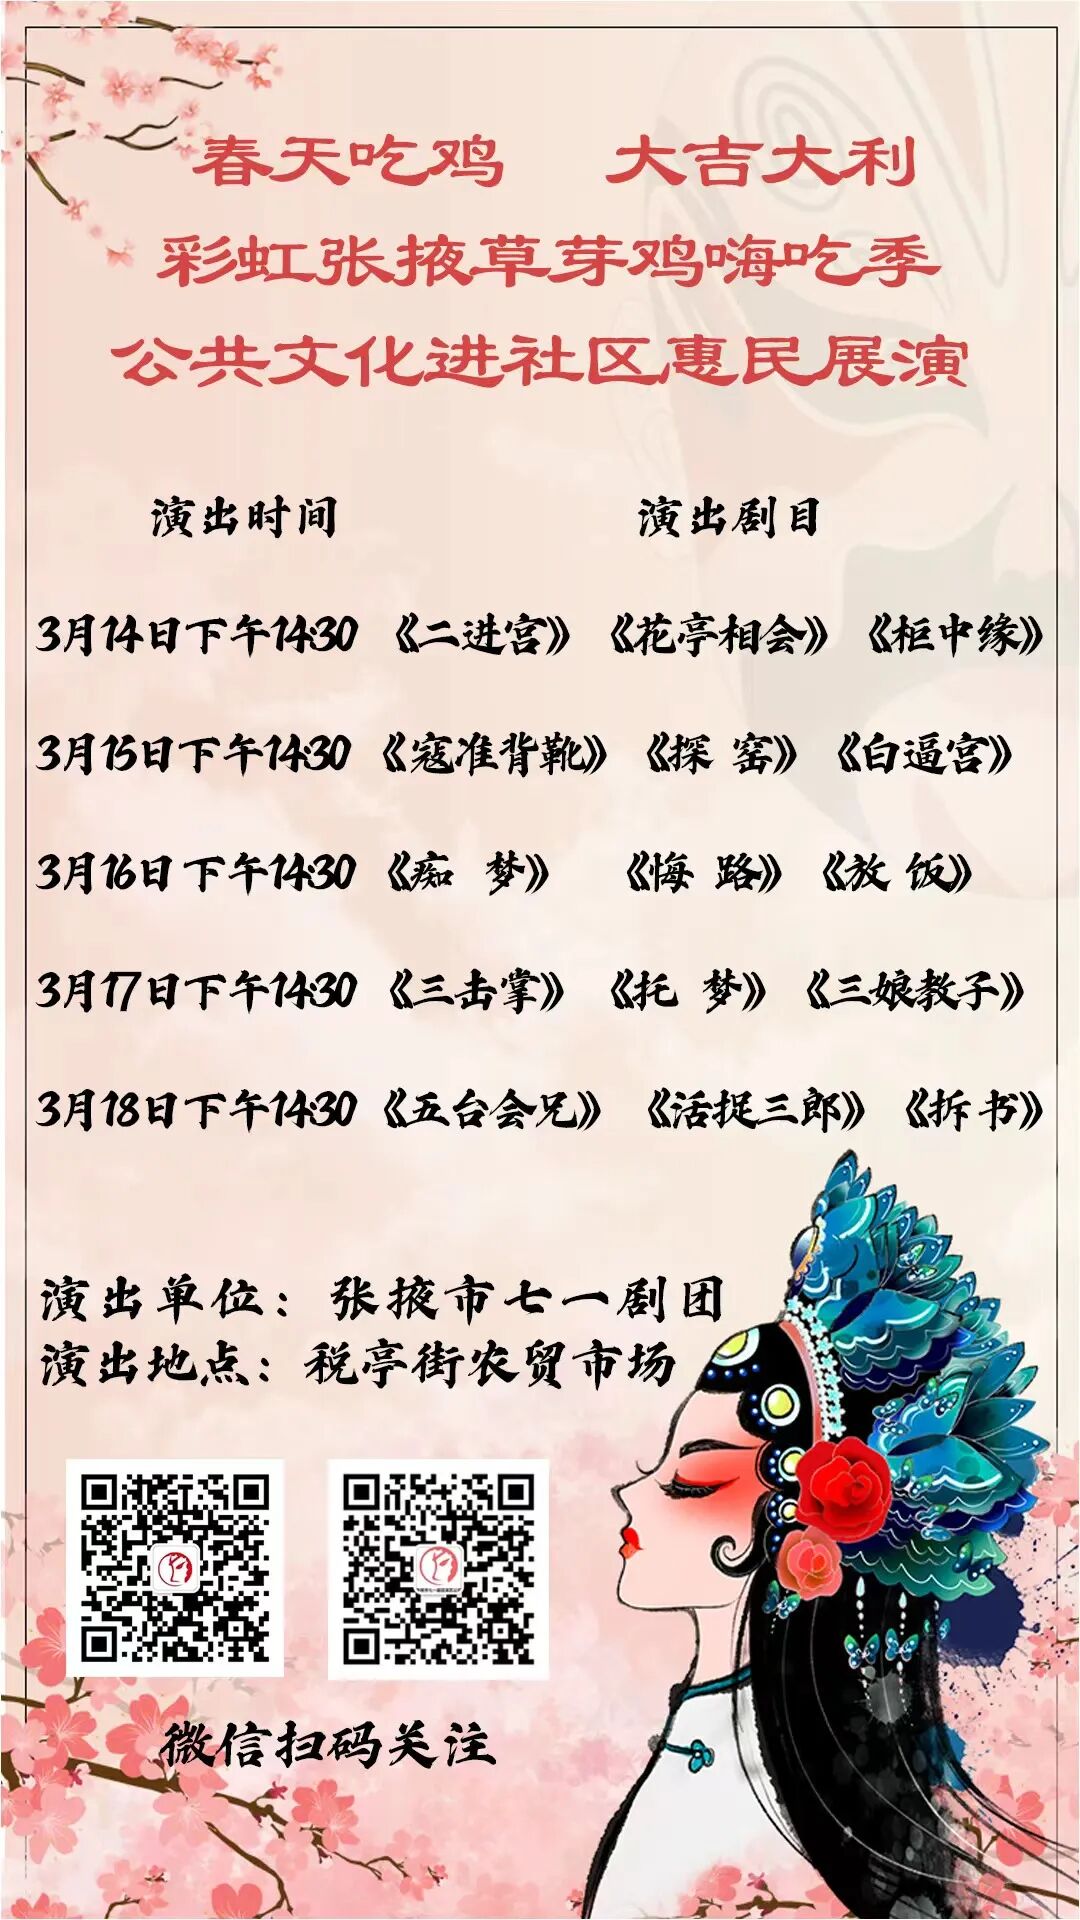 春天吃鸡 大吉大利
彩虹张掖草芽鸡嗨吃季
公共文化进社区惠民展演
演出时间 演出剧目
3月14日下午14:30 《二进宫》 《花亭相会》 《柜中缘》
3月15日下午14:30 《寇准背靴》 《探 窑》 《白逼宫》
3月16日下午14:30 《痴 梦》 《悔 路》 《放 饭》
3月17日下午14:30 《三击掌》 《托 梦》 《三娘教子》
3月18日下午14:30 《五台会兄》 《活捉三郎》 《拆书》
演出单位：张掖市七一剧团
演出地点：税亭街农贸市场
微信扫码关注